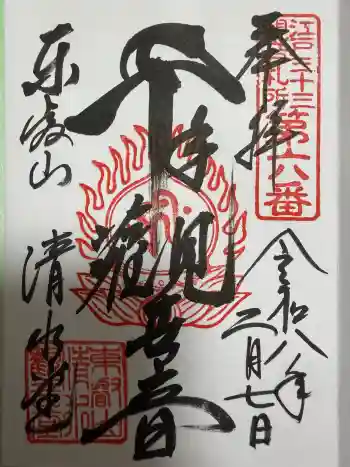 江戸三十三
観音札所
第六番
奉拝
令和八年
二月七日
千手観世音
東叡山
清水堂
東叡山
清水
観音堂